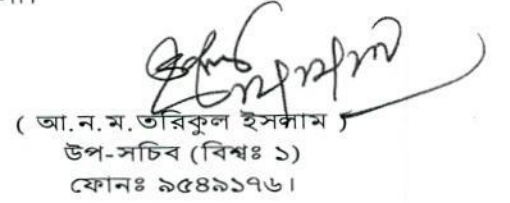 ( আ.ন.ম.তরিকুল ইসলাম )
উপ-সচিব (বিশ্বঃ ১)
ফোনঃ ৯৫৪৯১৭৬।